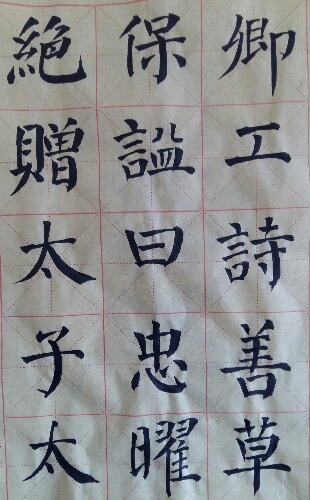 卿工詩善草
保謚曰忠曜
絶贈太子太